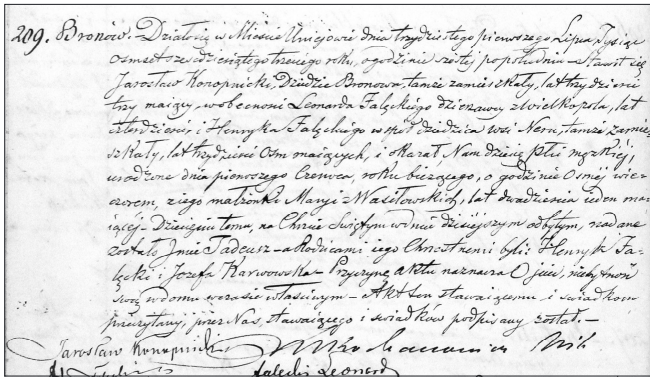 209. Bronów. Działo się w Mieście Uniejowie dnia trzydziestego pierwszego Lipca, Tysiąc
ośmset sześćdziesiątego trzeciego roku, o godzinie szóstej popołudniu – Stawił się
Jarosław Konopnicki, Dziedzic Bronowa, tamże zamieszkały, lat trzydzieści
trzy maiący, w obecności Leonarda Fałęckiego dzierżawcy z Wielkopola, lat
czterdzieści, i Henryka Fałęckiego współdziedzica wsi Neru, tamże zamie-
szkały, lat trzydzieści ośm maiących, i okazał Nam dziecię płci męzkiéj,
urodzone dnia pierwszego Czerwca, roku bieżącego, o godzinie ósméj wie-
czorem, z jego małżonki Maryi z Wasiłowskich, lat dwadzieścia ieden ma-
iącéj – Dziecięciu temu, na Chrzcie Świętym w dniu dzisiejszym odbytym, nadane
zostało Jmie Tadeusz – a Rodzicami iego Chrzestnemi byli: Henryk Fa-
łęcki i Józefa Karwowska – Przyczynę aktu naznacza Ojciec,
swą w domu w czasie właściwym – Akt ten stawaiącemu i świadkom
przeczytany, przez Nas, stawaiącego i świadków podpisany został. –
Jarosław Konopnicki
Fałęcki Leonard